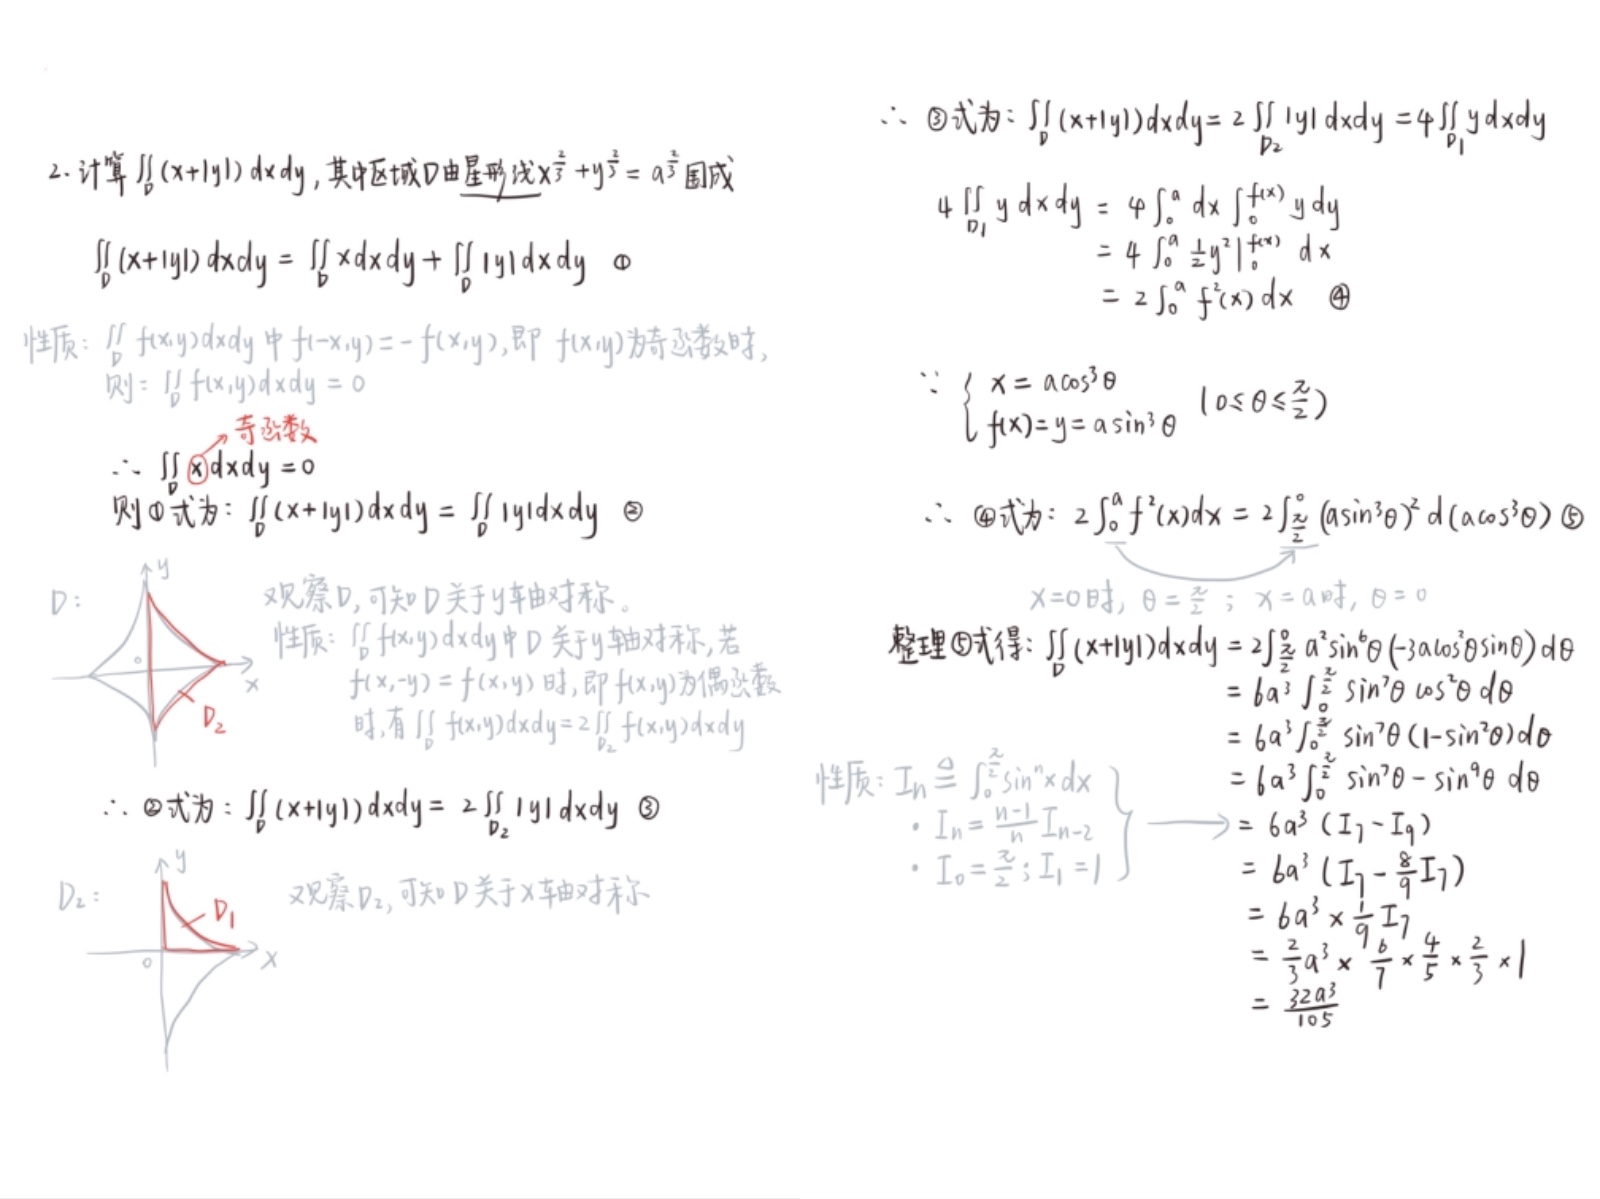 2. 计算∬_D (x+|y|) dxdy, 其中区域D由星形线x^{2/3}+y^{2/3}=a^{2/3}围成
∬_D (x+|y|) dxdy = ∬_D xdxdy + ∬_D |y|dxdy ①
性质: ∬_D f(x,y)dxdy 中 f(-x,y)=-f(x,y), 即 f(x,y)为奇函数时,
则: ∬_D f(x,y)dxdy = 0
奇函数
∴ ∬_D x dxdy = 0
则①式为: ∬_D (x+|y|) dxdy = ∬_D |y|dxdy ②
D:
y
0
x
D₂
观察D, 可知D关于y轴对称。
性质: ∬_D f(x,y)dxdy中D关于y轴对称, 若
f(x,-y) = f(x,y) 时, 即f(x,y)为偶函数
时, 有∬_D f(x,y)dxdy = 2∬_{D₂} f(x,y)dxdy
∴ ②式为: ∬_D (x+|y|) dxdy = 2∬_{D₂} |y| dxdy ③
D₂:
y
D₁
0
x
观察D₂, 可知D关于x轴对称
∴ ③式为: ∬_D (x+|y|)dxdy = 2∬_{D₂} |y| dxdy = 4∬_{D₁} y dxdy
4∬_{D₁} y dxdy = 4∫_0^a dx ∫_0^{f(x)} y dy
= 4∫_0^a ½y²|_0^{f(x)} dx
= 2∫_0^a f²(x) dx ④
∵ { x = acos³θ
f(x)=y=asin³θ (0≤θ≤π/2)
∴ ④式为: 2∫_0^a f²(x)dx = 2∫_{π/2}^0 (asin³θ)² d(acos³θ) ⑤
x=0时, θ=π/2; x=a时, θ=0
整理⑤式得: ∬_D (x+|y|)dxdy = 2∫_{π/2}^0 a²sin⁶θ(-3acos²θsinθ)dθ
= 6a³∫_0^{π/2} sin⁷θ cos²θ dθ
= 6a³∫_0^{π/2} sin⁷θ(1-sin²θ)dθ
= 6a³∫_0^{π/2} sin⁷θ - sin⁹θ dθ
性质: Iₙ ≜ ∫_0^{π/2} sinⁿx dx
· Iₙ = (n-1)/n Iₙ₋₂
· I₀ = π/2; I₁ = 1
= 6a³ (I₇ - I₉)
= 6a³ (I₇ - 8/9 I₇)
= 6a³ × 1/9 I₇
= 2/3 a³ × 6/7 × 4/5 × 2/3 × 1
= 32a³/105